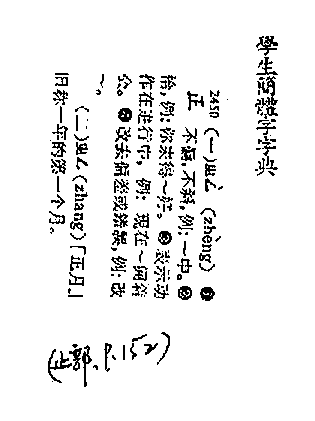 學生簡體字字典
2450 (一)ㄓㄥˋ (zhèng) ❶
正 不偏,不斜,例:~中。❷
恰,例:你来得~好。❸表示动
作在进行中,例:现在~
公。❹改去偏差或错误,例:改
~。
(二)ㄓㄥ (zhang)「正月」
旧称一年的第一个月。
(正郭.P.152)